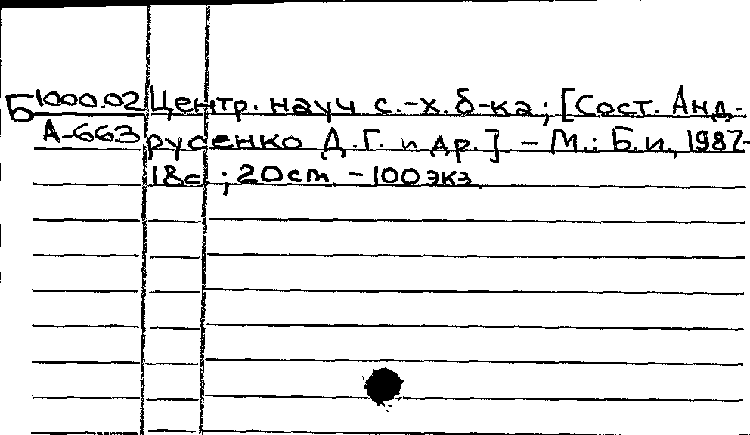 Б1000.02 Центр. науч с.-х. б-ка; [Сост. Анд-
А-663 русенко Д.Г. и др.] - М.: Б.и., 1987-
18с ; 20cm. - 100 экз.